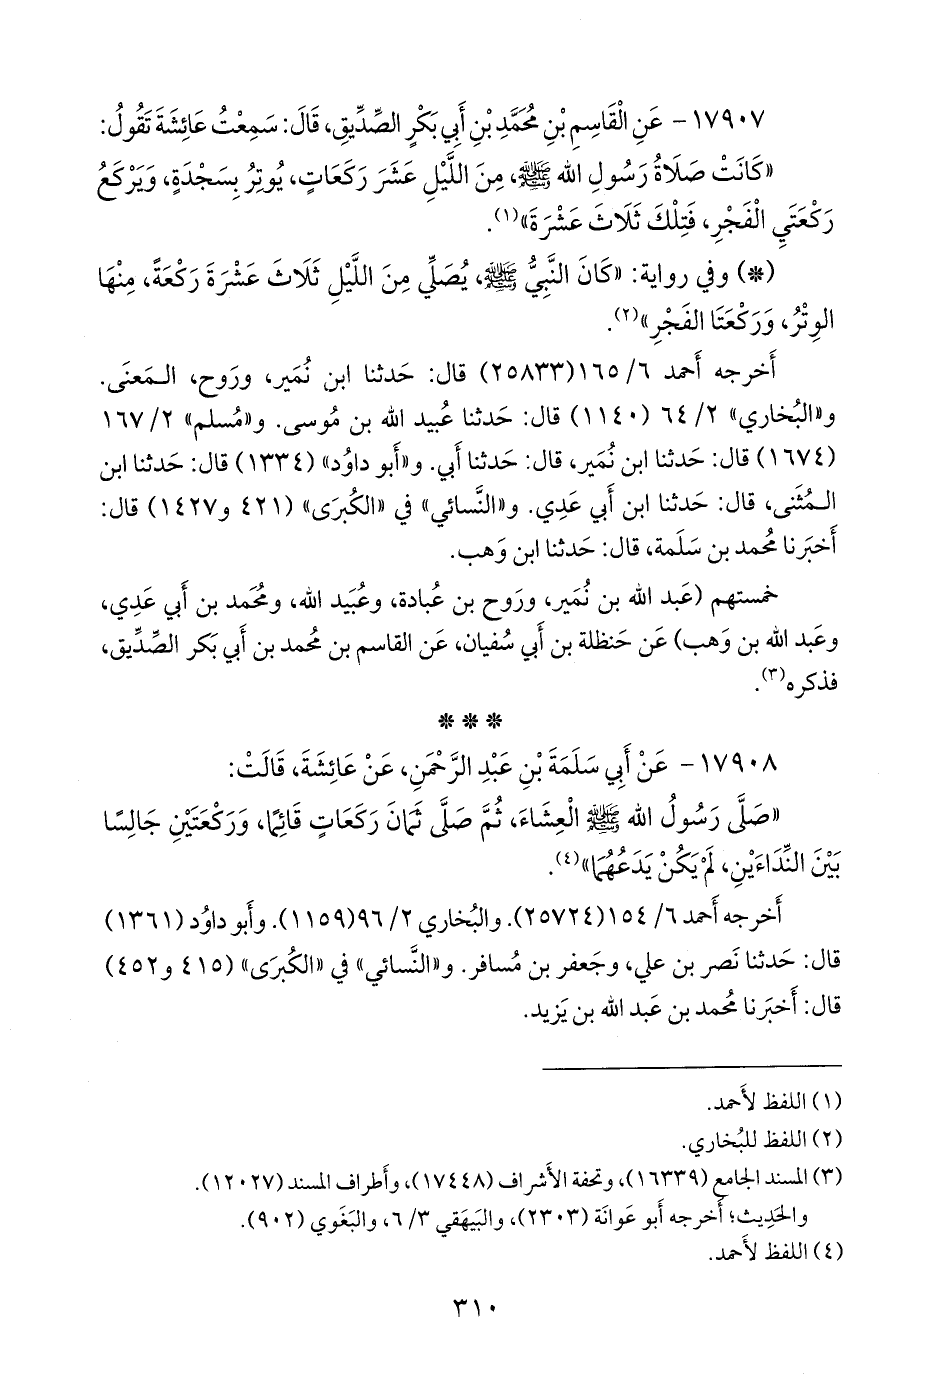 ١٧٩٠٧ - عَنِ الْقَاسِمِ بْنِ مُحَمَّدِ بْنِ أَبِي بَكْرٍ الصِّدِّيقِ، قَالَ: سَمِعْتُ عَائِشَةَ تَقُولُ:
«كَانَتْ صَلَاةُ رَسُولِ الله ﷺ، مِنَ اللَّيْلِ عَشَرَ رَكَعَاتٍ، يُوتِرُ بِسَجْدَةٍ، وَيَرْكَعُ
رَكْعَتَيِ الْفَجْرِ، فَتِلْكَ ثَلَاثَ عَشْرَةَ»(١).
(*) وفي رواية: «كَانَ النَّبِيُّ ﷺ، يُصَلِّي مِنَ اللَّيْلِ ثَلَاثَ عَشْرَةَ رَكْعَةً، مِنْهَا
الوِتْرُ، وَرَكْعَتَا الفَجْرِ»(٢).
أَخرجه أَحمد ٦/ ١٦٥(٢٥٨٣٣) قال: حَدثنا ابن نُمَير، ورَوح، الـمَعنَى.
و«البُخاري» ٢/ ٦٤ (١١٤٠) قال: حَدثنا عُبيد الله بن مُوسى. و«مُسلم» ٢/ ١٦٧
(١٦٧٤) قال: حَدثنا ابن نُمَير، قال: حَدثنا أَبي. و«أَبو داوُد» (١٣٣٤) قال: حَدثنا ابن
الـمُثنى، قال: حَدثنا ابن أَبي عَدِي. و«النَّسائي» في «الكُبرَى» (٤٢١ و١٤٢٧) قال:
أَخبَرنا مُحمد بن سَلَمة، قال: حَدثنا ابن وَهب.
خمستهم (عَبد الله بن نُمَير، ورَوح بن عُبادة، وعُبَيد الله، ومُحَمد بن أَبي عَدِي،
وعَبد الله بن وَهب) عَن حَنظلة بن أَبي سُفيان، عَن القاسم بن مُحمد بن أَبي بَكر الصِّدِّيق،
فذكره(٣).
* * *
١٧٩٠٨ - عَنْ أَبِي سَلَمَةَ بْنِ عَبْدِ الرَّحْمَنِ، عَنْ عَائِشَةَ، قَالَتْ:
«صَلَّى رَسُولُ الله ﷺ الْعِشَاءَ، ثُمَّ صَلَّى ثَمَانَ رَكَعَاتٍ قَائِمًا، وَرَكْعَتَيْنِ جَالِسًا
بَيْنَ النِّدَاءَيْنِ، لَمْ يَكُنْ يَدَعُهُمَا»(٤).
أَخرجه أَحمد ٦/ ١٥٤(٢٥٧٢٤). والبُخاري ٢/ ٩٦(١١٥٩). وأَبو داوُد (١٣٦١)
قال: حَدثنا نَصر بن علي، وجَعفر بن مُسافر. و«النَّسائي» في «الكُبرَى» (٤١٥ و٤٥٢)
قال: أَخبَرنا مُحمد بن عَبد الله بن يَزيد.
(١) اللفظ لأَحمد.
(٢) اللفظ للبُخاري.
(٣) المسند الجامع (١٦٣٣٩)، وتحفة الأَشراف (١٧٤٤٨)، وأَطراف المسند (١٢٠٢٧).
والحَدِيث؛ أَخرجه أَبو عَوانَة (٢٣٠٣)، والبَيهَقي ٣/ ٦، والبَغَوي (٩٠٢).
(٤) اللفظ لأَحمد.
٣١٠